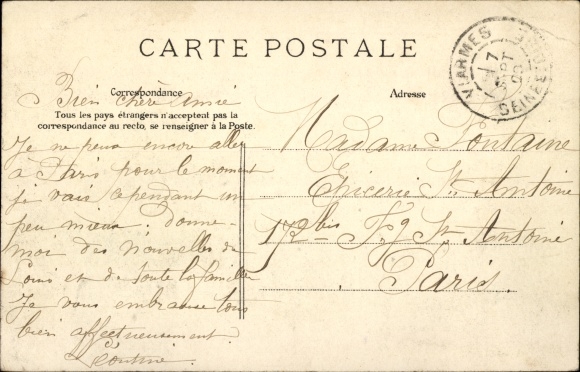 CARTE POSTALE
Correspondance
Tous les pays étrangers n'acceptent pas la
correspondance au recto, se renseigner à la Poste.
Adresse
VIARMES
7
SEPT
SEINE
Bien chère amie
Je ne peux encore aller
à Paris pour le moment
je vais cependant un
peu mieux, donne-
moi des nouvelles de
Louis et de toute la famille
Je vous embrasse tous
bien affectueusement.
Madame Fontaine
Epicerie St Antoine
172bis Fg St Antoine
Paris.